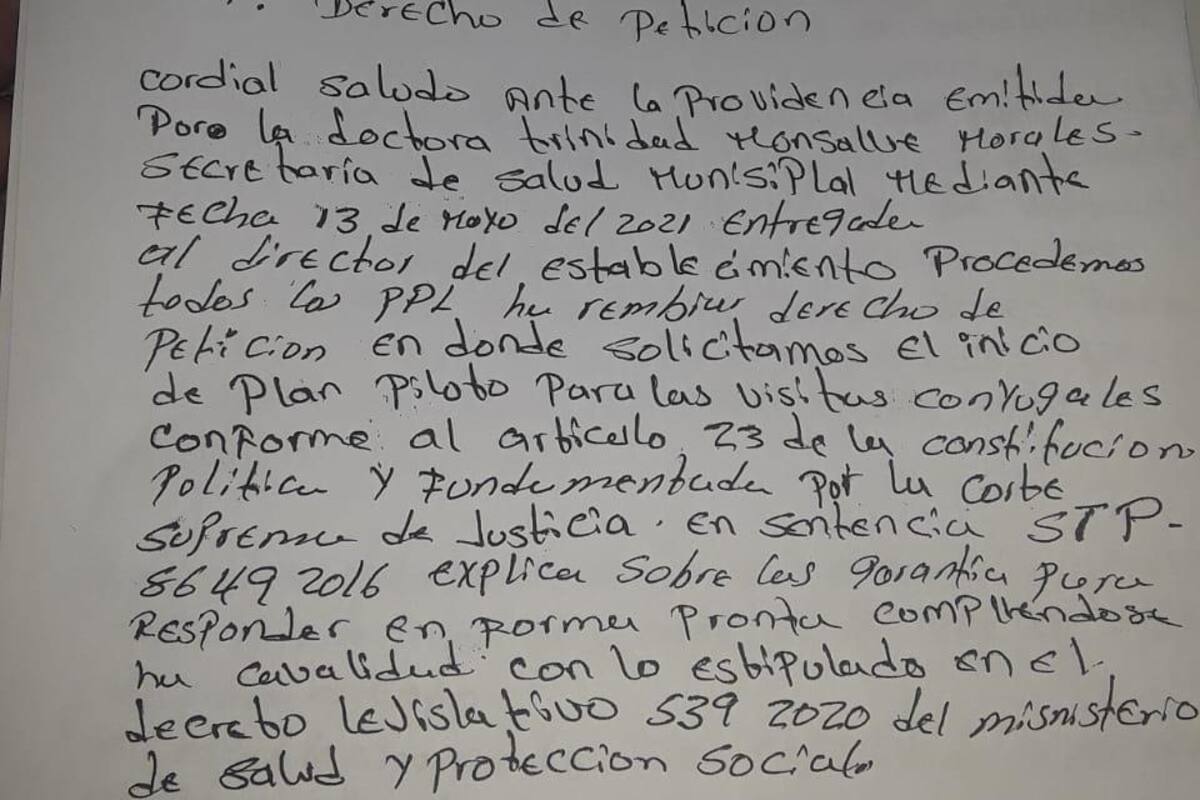 Derecho de Peticion
cordial saludo Ante la Providencia Emitida
Poro la doctora trinidad Monsalve Morales-
Secretaría de salud Munisiplal Mediante
Fecha 13 de Mayo del 2021 Entregada
al director del establecimiento Procedemos
todos los PPL ha rembiar derecho de
Peticion en donde solicitamos el inicio
de Plan Piloto Para las visitas conyugales
conforme al articulo 23 de la constitucion
Politica y Fundamentada por la Corte
Suprema de Justicia. en sentencia STP-
8649 2016 explica sobre las garantia para
Responder en forma pronta compliendose
ha cavalidad con lo estipulado en el
decreto lejislativo 539 2020 del misnisterio
de salud y proteccion social.